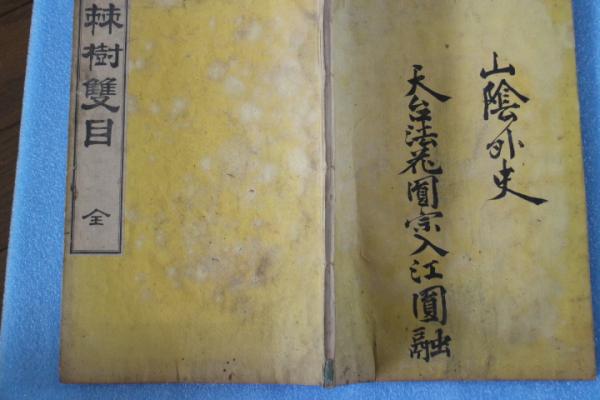 山陰外史
天台法花圓宗入江圓融
棘樹雙目
全